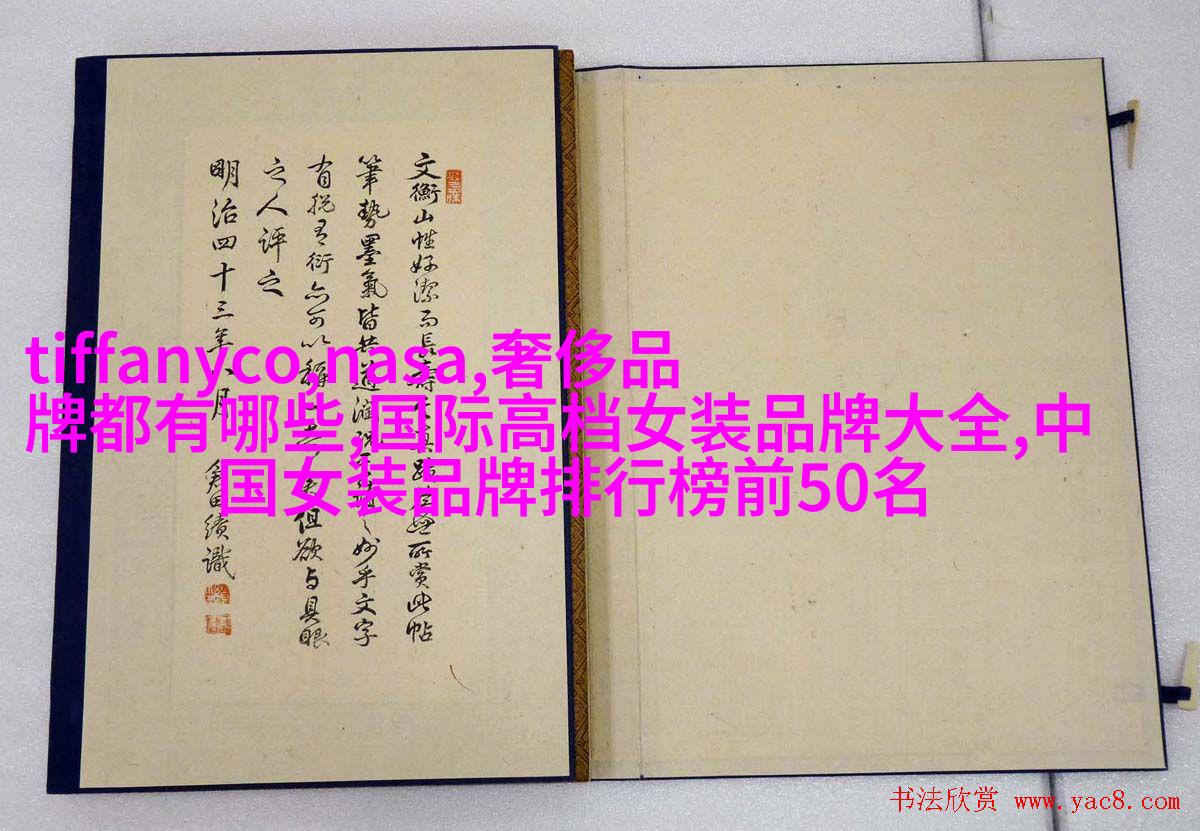 文衡山性好潔而長壽所賞此帖
筆勢墨氣皆妙乎文字
有衍亦可以但欲与具眼
之人評之
明治四十三年八月 田績識
tiffanyco,nasa,奢侈品
牌都有哪些,国际高档女装品牌大全,中
国女装品牌排行榜前50名
书法欣赏 www.yac8.com